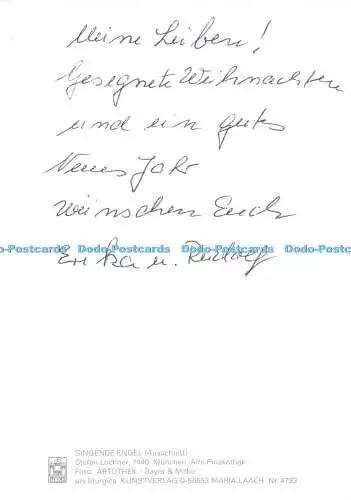 Meine Lieben!
Gesegnete Weihnachten
und ein gutes
Neues Jahr
wünschen Euch
Dodo-Postcards Dodo-Postcards Dodo-Postcards Dodo-Postcards Dodo-Postcards
Erika u. Rudolf
SINGENDE ENGEL (Ausschnitt)
Stefan Lochner, 1440. München, Alte Pinakothek
Foto: ARTOTHEK - Bayer & Mitko
ars liturgica KUNSTVERLAG D-56653 MARIA LAACH Nr 4793